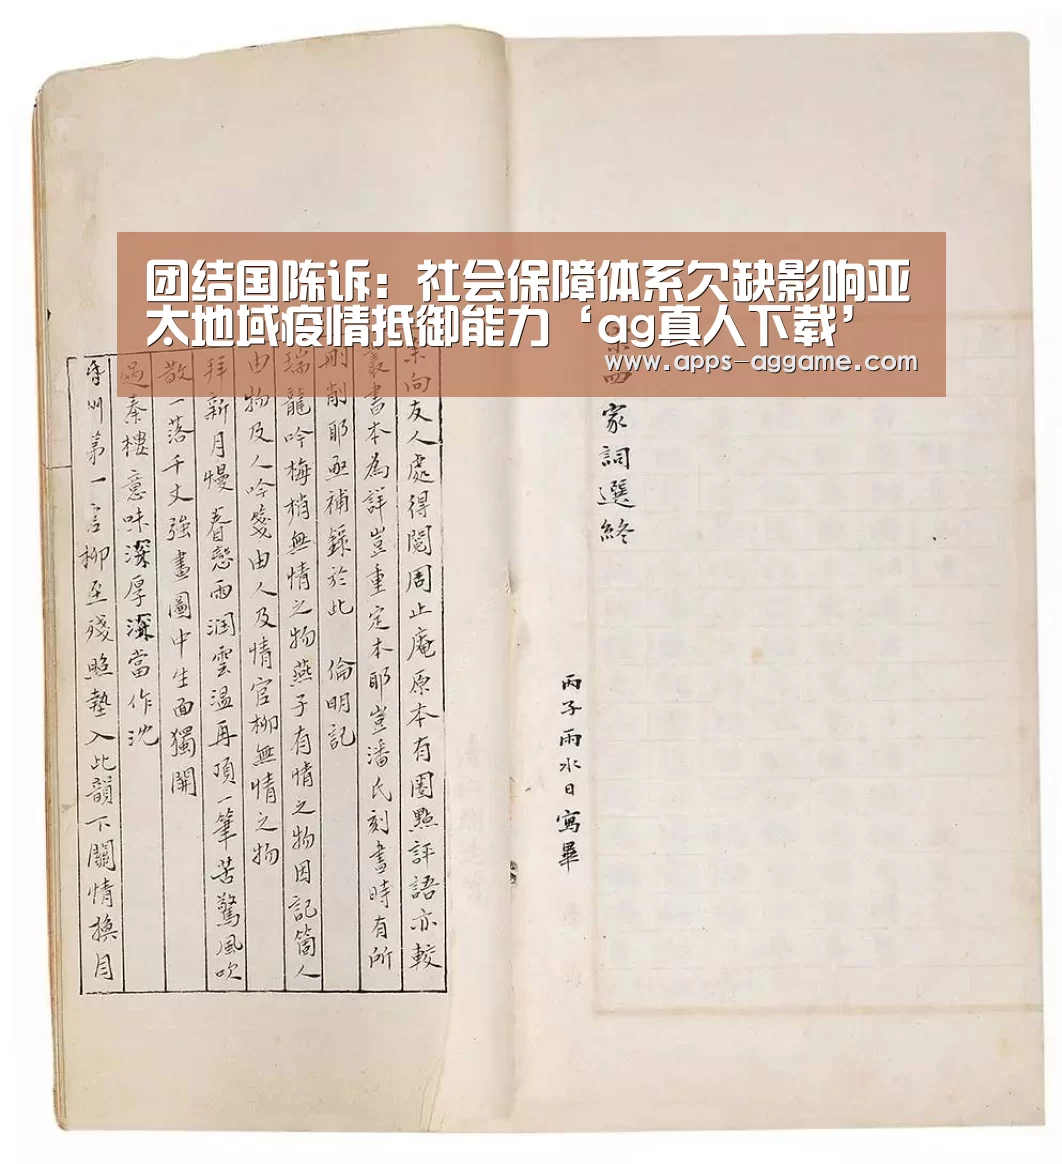 团结国陈诉：社会保障体系欠缺影响亚
太地域疫情抵御能力‘ag真人下载’
www.apps-aggame.com
四家詞選終
丙子雨水日寫畢
向友人處得閱周止庵原本有圈點評語亦較
叢書本為詳豈重定本耶豈潘氏刻書時有所
刪削耶亟補錄於此 倫明記
瑞龍吟梅梢無情之物燕子有情之物因記箇人
由物及人吟箋由人及情官柳無情之物
拜新月慢春戀雨潤雲溫再頂一筆苦驚風吹
散一落千丈強畫圖中生面獨開
過秦樓意味深厚深當作沈
第一言柳至殘照墊入此韻下關情換月